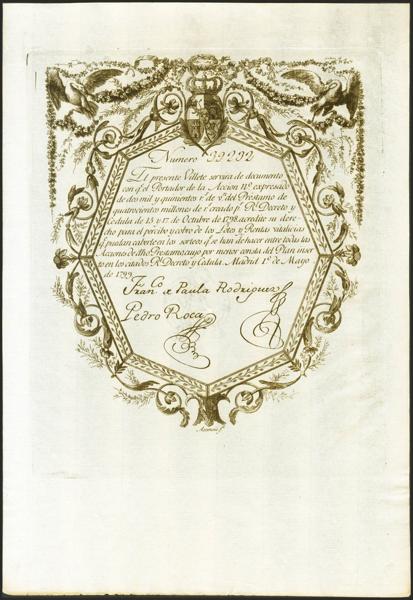 Numero 39292
El presente Vallete servira de documento
con q.e el Portador de la Accion n.º expresado
de dos mil y quinientos r.s de v.n del Prestamo de
quatrocientos millones de r.s creado p.r R.l Decreto y
Cedula de 15. y 17. de Octubre de 1798. acredite su dere-
cho para el percibo y cobro de los Lotes y Rentas vitalicias
q.e puedan caberle en los sorteos q.e se han de hacer entre todas las
Acciones de dho Prestamo, cuyo por menor consta del Plan inser
to en los citados R.l Decreto y Cedula. Madrid 1.º de Mayo
de 1799.
Fran.co a Paula Rodriguez
Pedro Roca